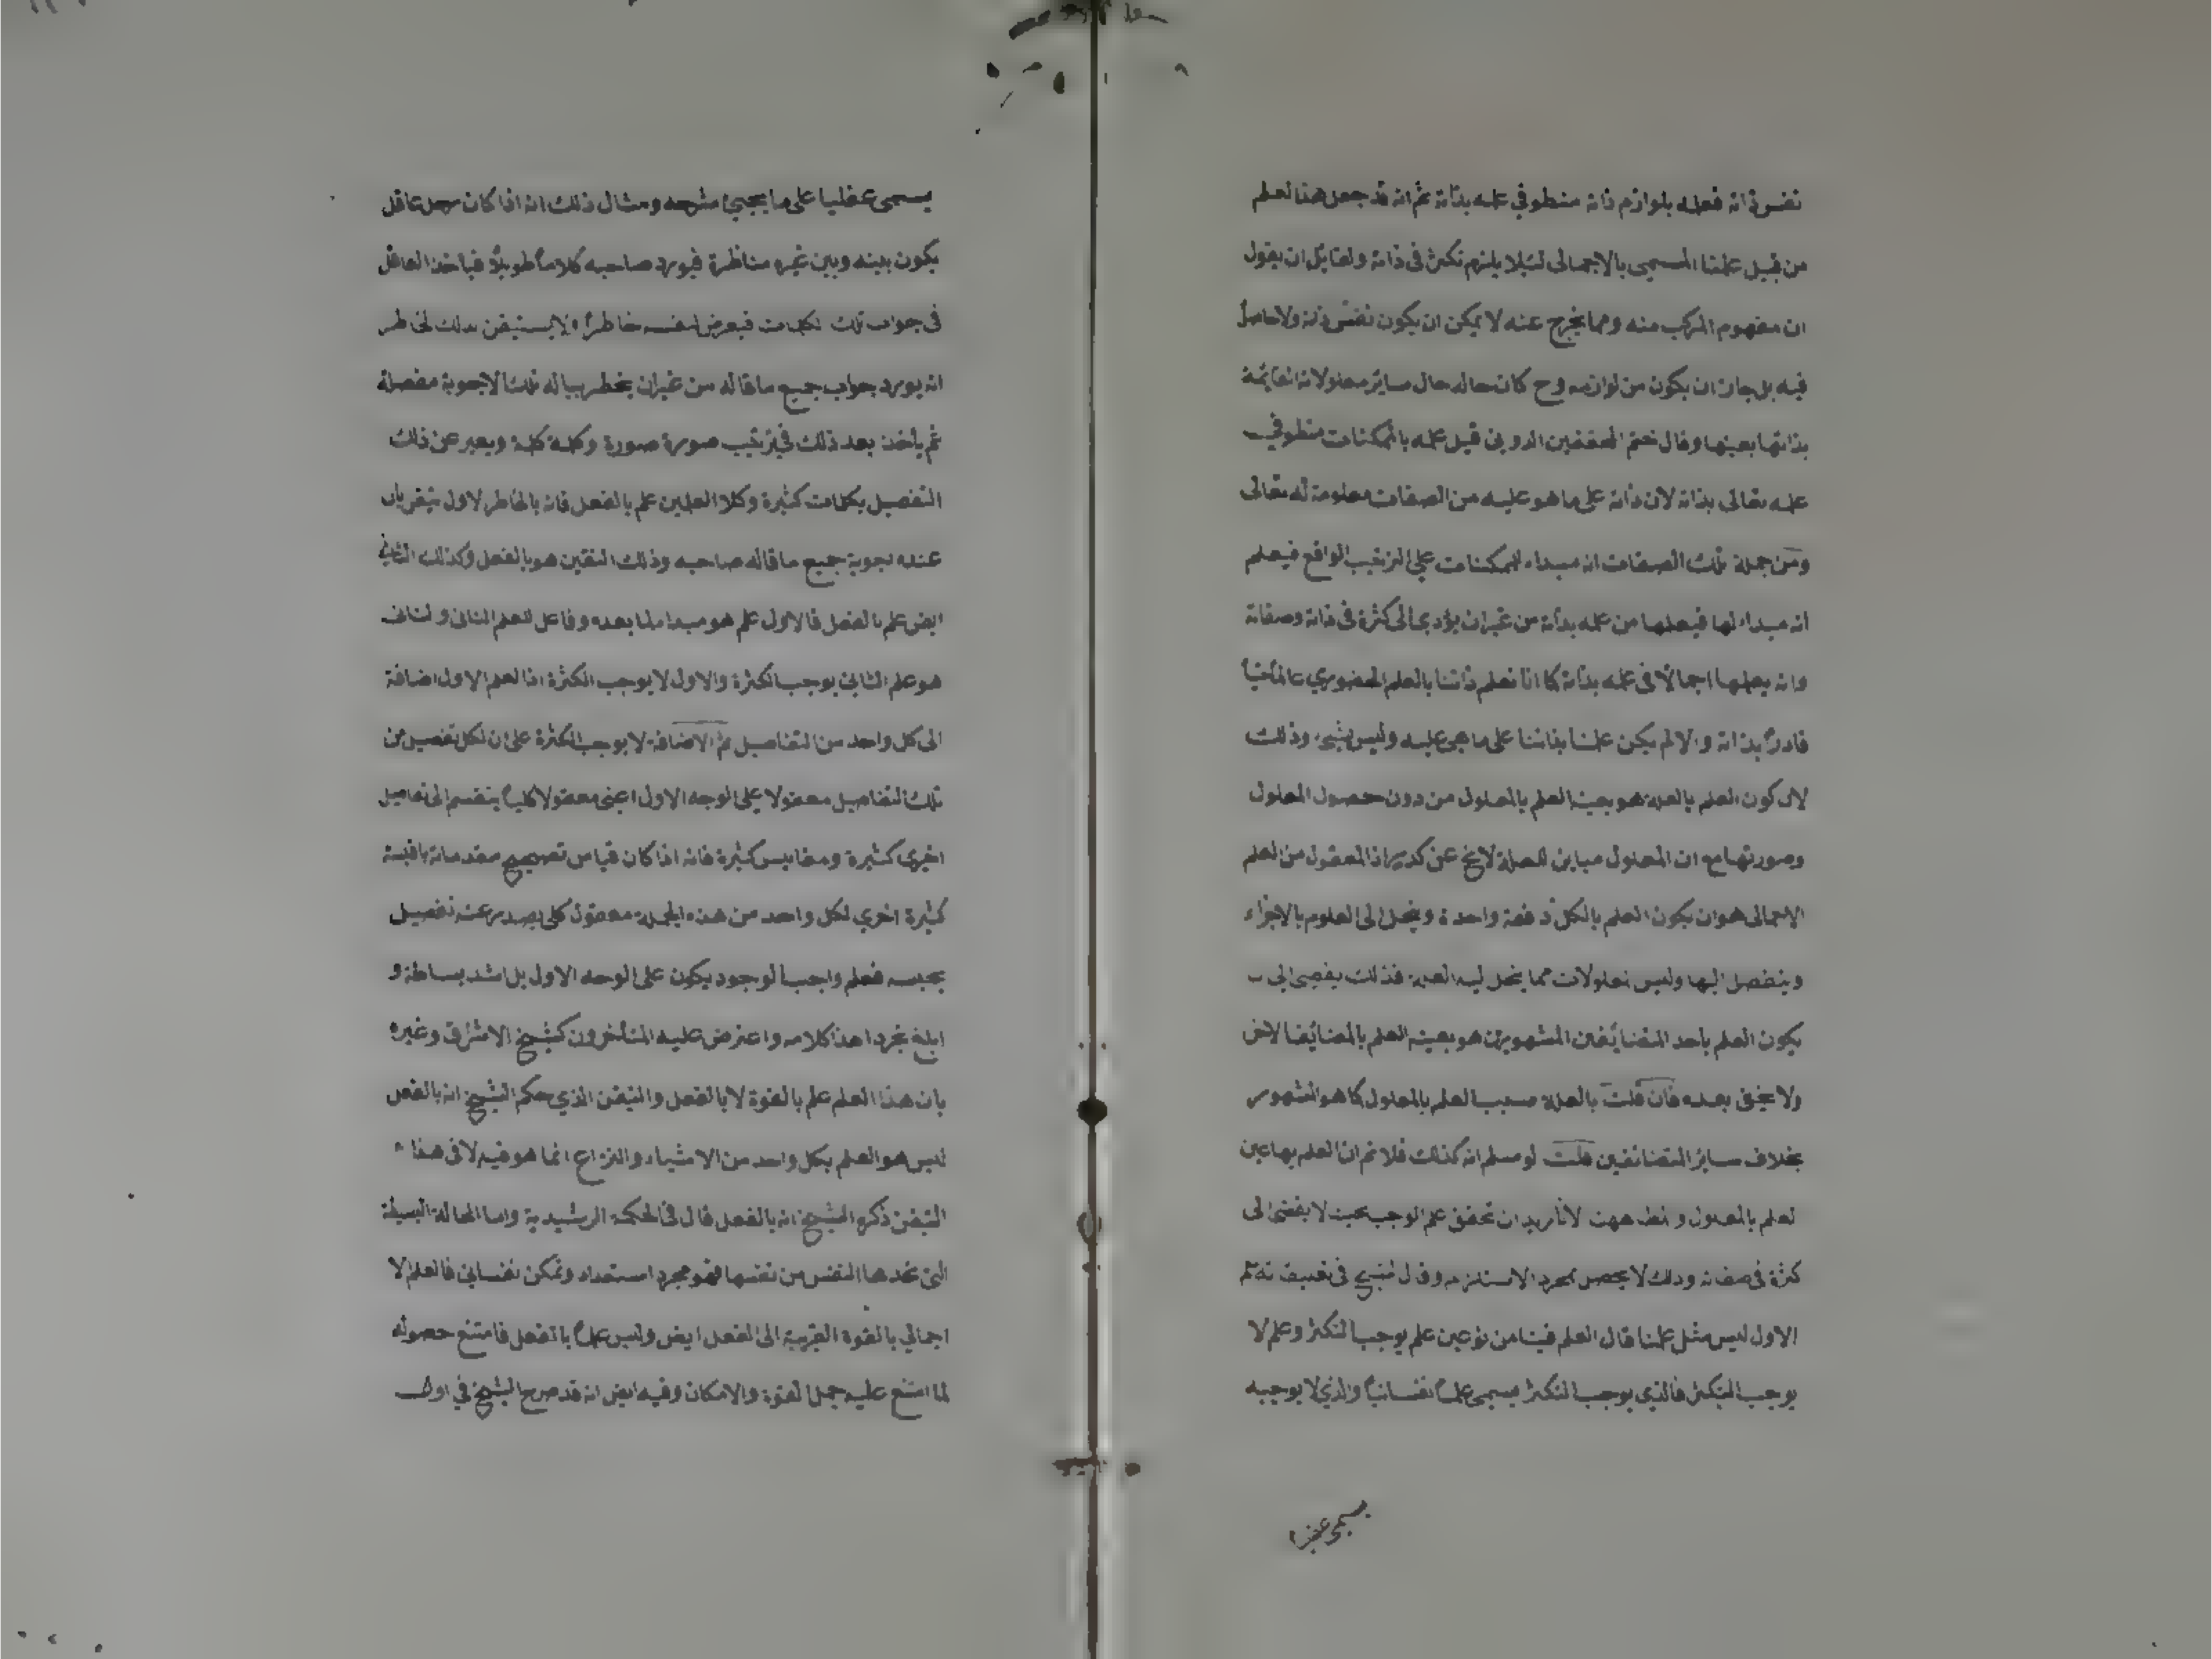 نفس ذاته فعلمه بلوازم ذاته منطو في علمه بذاته ثم انه قد جعل هذا العلم
من قبيل علمنا المسمى بالاجمالى لئلا يلزم تكثر فى ذاته ولقائل ان يقول
ان مفهوم المركب منه ومما يخرج عنه لا يمكن ان يكون نفس ذاته ولا حاصلاً
فيه بل جاز ان يكون من لوازمه وح كان حاله حال ساير معلولاته القائمة
بذاتها بعينها وقال ختم المحققين الدوانى قيل علمه بالممكنات منطو في
علمه تعالى بذاته لان ذاته على ما هو عليه من الصفات معلومة له تعالى
ومن جملة تلك الصفات انه مبداء للممكنات على الترتيب الواقع فيعلم
انه مبداء لها فيعلمها من علمه بذاته من غير ان يؤدى الى كثرة فى ذاته وصفاته
وانه يعلمها اجمالاً فى علمه بذاته كما انا نعلم ذاتنا بالعلم الحضوري عالماً حياً
قادراً بذاته والا لم يكن علمنا بذاتنا على ما هى عليه وليس بشئ وذلك
لان كون العلم بالعلة هو بعينه العلم بالمعلول من دون حصول المعلول
وصورتها مع ان المعلول مباين للعلة لا يخ عن كدر اذ المعقول من العلم
الاجمالى هو ان يكون العلم بالكل دفعة واحدة وينحل الى العلوم بالاجزاء
وينفصل اليها وليس معلولات مما ينحل اليه العلة فذلك يفضى الى
يكون العلم باحد المتضائفين المشهورين هو بعينه العلم بالمضائف الاخر
ولا يخفى بعده فان قلت بالعلة سبب العلم بالمعلول كما هو المشهور
بخلاف ساير المتضائفين قلت لو سلم انه كذلك فلا نم ان العلم بها عين
لعلم بالمعلول و ههنا لانا نريد ان تحقق علم الوجب بحيث لا يفضى الى
كثرة فى صفاته وذلك لا يحصل بمجرد الاستلزمه وقال الشيخ فى تعليقاته علم
الاول ليس مثل علمنا قال العلم فينا من نوعين علم يوجب التكثر وعلم لا
يوجب التكثر فالذى يوجب التكثر يسمى علماً نفسانياً والذي لا يوجبه
يسمى عقليا
يسمى عقليا على ما يجيئ شرحه ومثال ذلك انه اذا كان رجل عاقل
يكون بينه وبين غيره مناظرة فيورد صاحبه كلاماً طويلاً فياخذ العاقل
فى جواب تلك لكلمات فيعرض لنفسه خاطراً ولا يستيقن بذلك لخاطر
انه يورد جواب جميع ما قاله من غير ان يخطر بباله تلك الاجوبة مفصلة
ثم ياخذ بعد ذلك فى ترتيب صورة صورة وكلمة كلمة ويعبر عن ذلك
التفصيل بكلمات كثيرة وكلا العلمين علم بالفعل فانه بالخاطر لاول تيقن بان
عنده اجوبة جميع ما قاله صاحبه وذلك التيقن هو بالفعل وكذلك الثانى
ايض علم بالفعل فالاول علم هو مبدا لما بعده وفاعل للعلم الثانى ولثانى
هو علم الثانى يوجب الكثرة والاول لا يوجب الكثرة اذ العلم الاول اضافة
الى كل واحد من التفاصيل ثم الاضافة لا يوجب الكثرة على ان لكل تفصيل من
تلك التفاصيل معقولا على الوجه الاول اعنى معقولا كلياً ينقسم الى تفاصيل
اخرى كثيرة ومقاييس كثيرة فانه اذا كان قياس تصحيح مقدماته باقيسة
كثيرة اخرى لكل واحد من هذه الجملة معقول كلى يصدر عنه تفصيل
بحبسه فعلم واجب الوجود يكون على الوجه الاول بل اشد بساطة و
ابلغ تجرداً هذا كلامه واعترض عليه المتأخرون كشيخ الاشراق وغيره
بان هذا العلم علم بالقوة لا بالفعل والتيقن الذي حكم الشيخ انه بالفعل
ليس هو العلم بكل واحد من الاشياء والنزاع انما هو فيه لا فى هذا
التيقن ذكره الشيخ انه بالفعل قال فى الحكمة الرشيدية واما الحالة البسيطة
التى تجدها النفس من نفسها فهو مجرد استعداد وتمكن نفسانى فالعلم الا
اجمالي بالقوة القريبة الى الفعل ايض وليس علماً بالفعل فامتنع حصوله
لما امتنع عليه جهة القوة والامكان وفيه ايض انه قد صرح الشيخ في اول